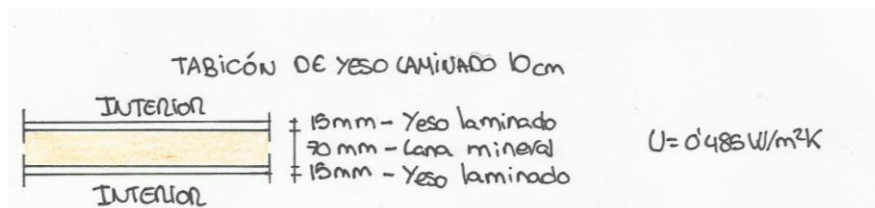 TABICÓN DE YESO LAMINADO 10cm
INTERIOR
15mm - Yeso laminado
70 mm - Lana mineral
15mm - Yeso laminado
U= 0'485 W/m²K
INTERIOR